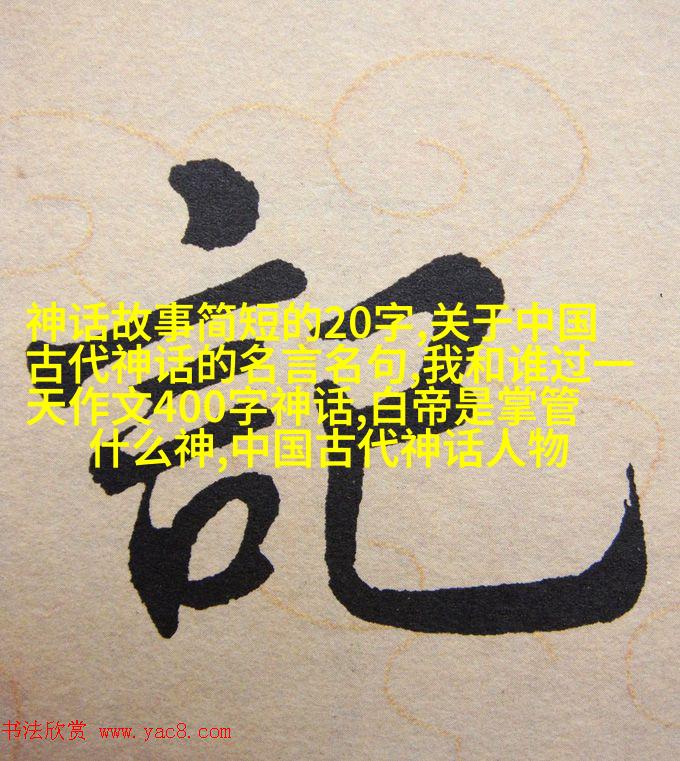 記
神话故事简短的20字,关于中国
古代神话的名言名句,我和谁过一
天作文400字神话,白帝是掌管
什么神,中国古代神话人物
书法欣赏 www.yac8.com